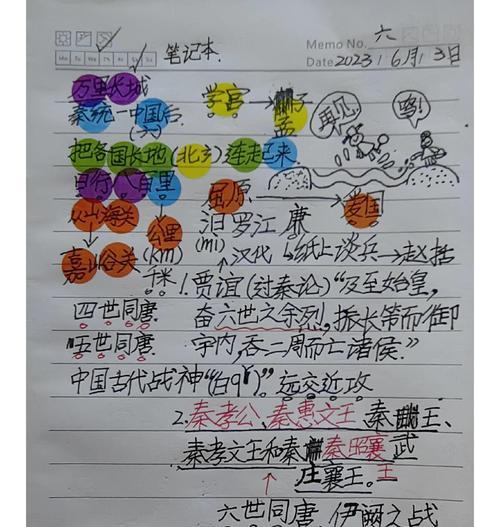 笔记本.
Memo No. 六
Mo Tu We Th Fr Sa Su
Date 2023, 6月 13日
万里长城 学宫 → 子
孟
再见! 咯!
秦统一中国后
(六)
把各国长地(北方)连走起来
日行八百里 屈原 → 爱国
从山海关 公里 汨罗江 廉
(km) (mi)
嘉峪谷关 千米! 汉代 纸上谈兵→赵括
贾谊(过秦论)"及至始皇,
四世同唐 奋六世之余烈,振长策而御
五世同唐 宇内,吞二周而亡诸侯."
中国古代战神"(白qǐ)" 远交近攻
2.秦孝公、秦惠文王、秦 王、
秦孝文王和秦 秦昭襄 武
庄襄王。王
六世同唐 伊阙之战